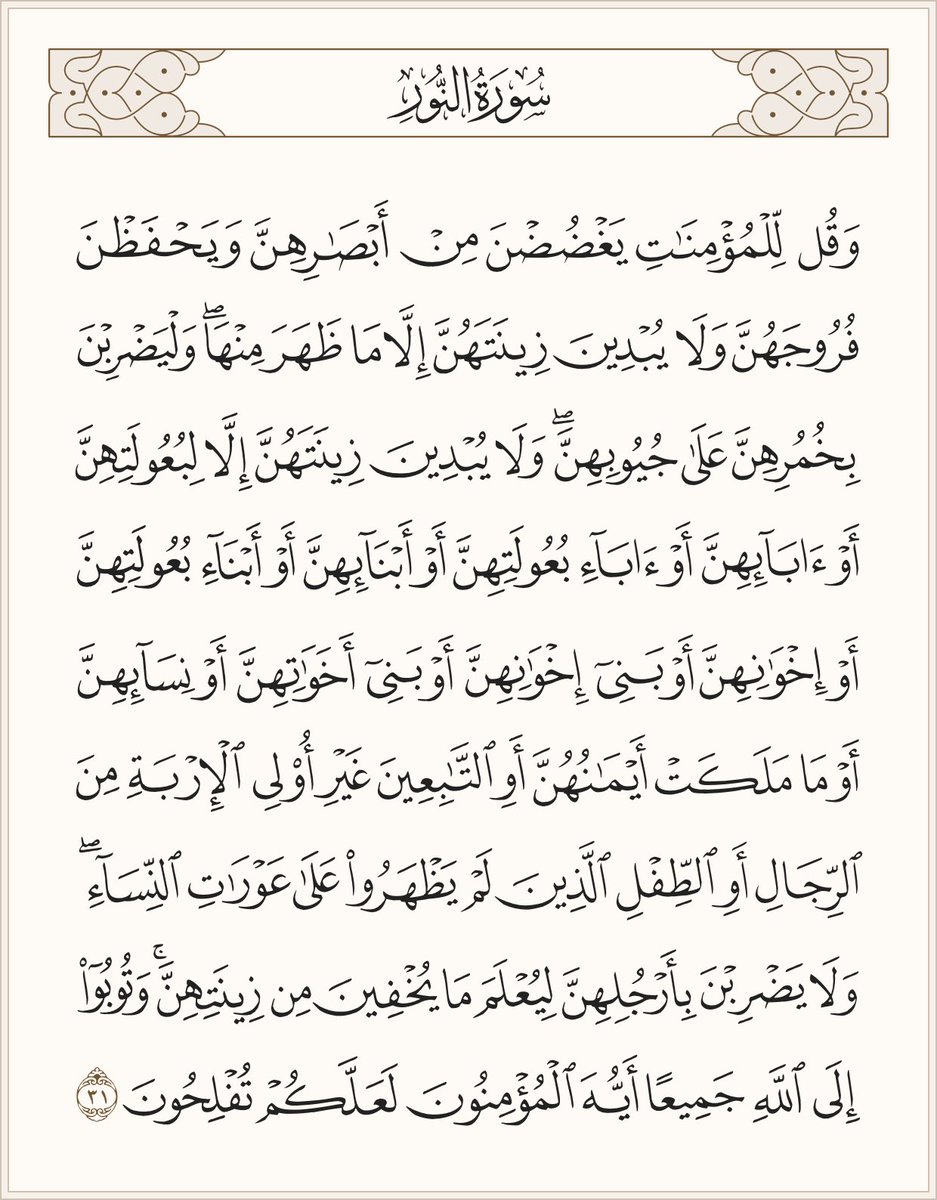 سُورَةُ النُّورِ
وَقُل لِّلْمُؤْمِنَٰتِ يَغْضُضْنَ مِنْ أَبْصَٰرِهِنَّ وَيَحْفَظْنَ
فُرُوجَهُنَّ وَلَا يُبْدِينَ زِينَتَهُنَّ إِلَّا مَا ظَهَرَ مِنْهَا ۖ وَلْيَضْرِبْنَ
بِخُمُرِهِنَّ عَلَىٰ جُيُوبِهِنَّ ۖ وَلَا يُبْدِينَ زِينَتَهُنَّ إِلَّا لِبُعُولَتِهِنَّ
أَوْ ءَابَآئِهِنَّ أَوْ ءَابَآءِ بُعُولَتِهِنَّ أَوْ أَبْنَآئِهِنَّ أَوْ أَبْنَآءِ بُعُولَتِهِنَّ
أَوْ إِخْوَٰنِهِنَّ أَوْ بَنِىٓ إِخْوَٰنِهِنَّ أَوْ بَنِىٓ أَخَوَٰتِهِنَّ أَوْ نِسَآئِهِنَّ
أَوْ مَا مَلَكَتْ أَيْمَٰنُهُنَّ أَوِ ٱلتَّٰبِعِينَ غَيْرِ أُو۟لِى ٱلْإِرْبَةِ مِنَ
ٱلرِّجَالِ أَوِ ٱلطِّفْلِ ٱلَّذِينَ لَمْ يَظْهَرُوا۟ عَلَىٰ عَوْرَٰتِ ٱلنِّسَآءِ ۖ
وَلَا يَضْرِبْنَ بِأَرْجُلِهِنَّ لِيُعْلَمَ مَا يُخْفِينَ مِن زِينَتِهِنَّ ۚ وَتُوبُوٓا۟
إِلَى ٱللَّهِ جَمِيعًا أَيُّهَ ٱلْمُؤْمِنُونَ لَعَلَّكُمْ تُفْلِحُونَ ٣١